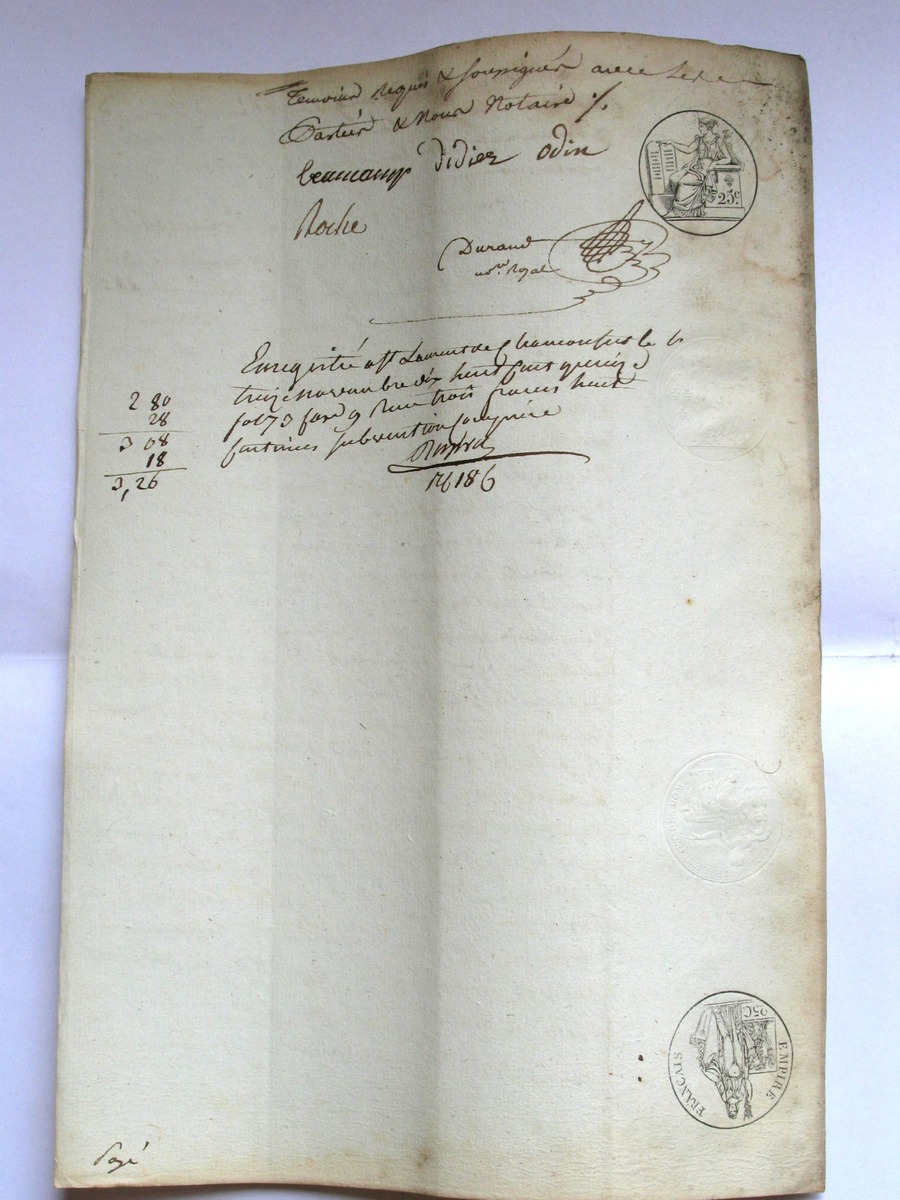 Temoins Requis & soussignés avec les
Parties & Nous Notaire ./.
beaucamp Didier Odin
Roche
Durand
no.re Royal
25c
Enregistré a St Laurent de Chamousset le
treize novembre dix huit cent quinze
fol 73 Reçu trois francs huit
centimes subvention comprise
2 80
28
3 08
18
3,26
EMPIRE
FRANÇAIS
Payé